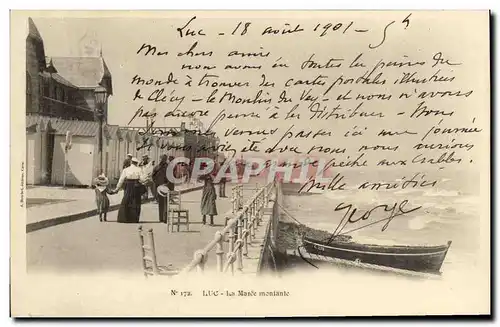 Luc - 18 août 1901 - 5h
Mes chers amis
nous avons eu toutes les peines du
monde à trouver des cartes postales illustrées
de Clécy - le Moulin du Vey - et nous n'avons
pas encore pensé à les distribuer - Nous
venons passer ici une journée
et avec nous
pêche aux crabes.
mille amitiés
George
PHOENIX
Nº 172. LUC - La Marée montante